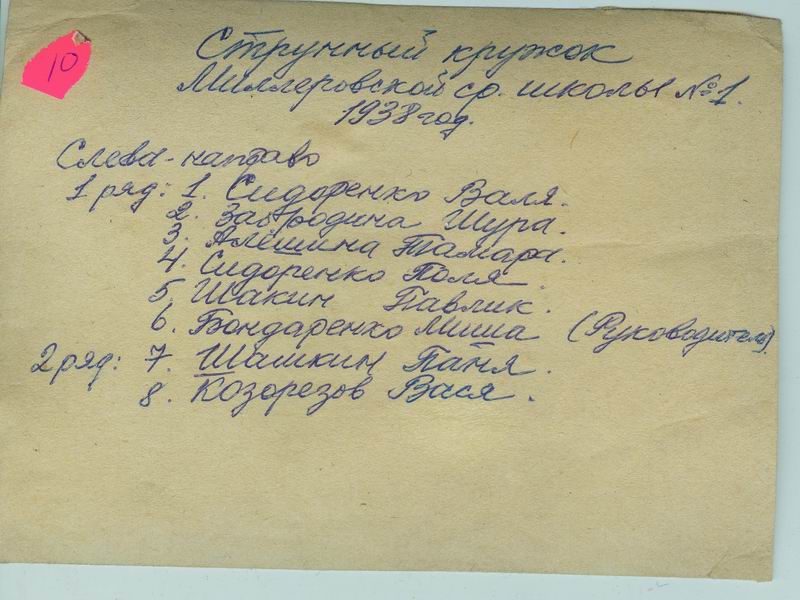 10
Струнный кружок
Миллеровской ср. школы №1.
1938 год.
Слева-направо
1 ряд: 1. Сидоренко Валя.
2. Забродина Шура.
3. Алёшина Тамара.
4. Сидоренко Поля
5. Шакин Павлик.
6. Бондаренко Миша (Руководитель).
2 ряд: 7. Шашкин Паня.
8. Козорезов Вася.